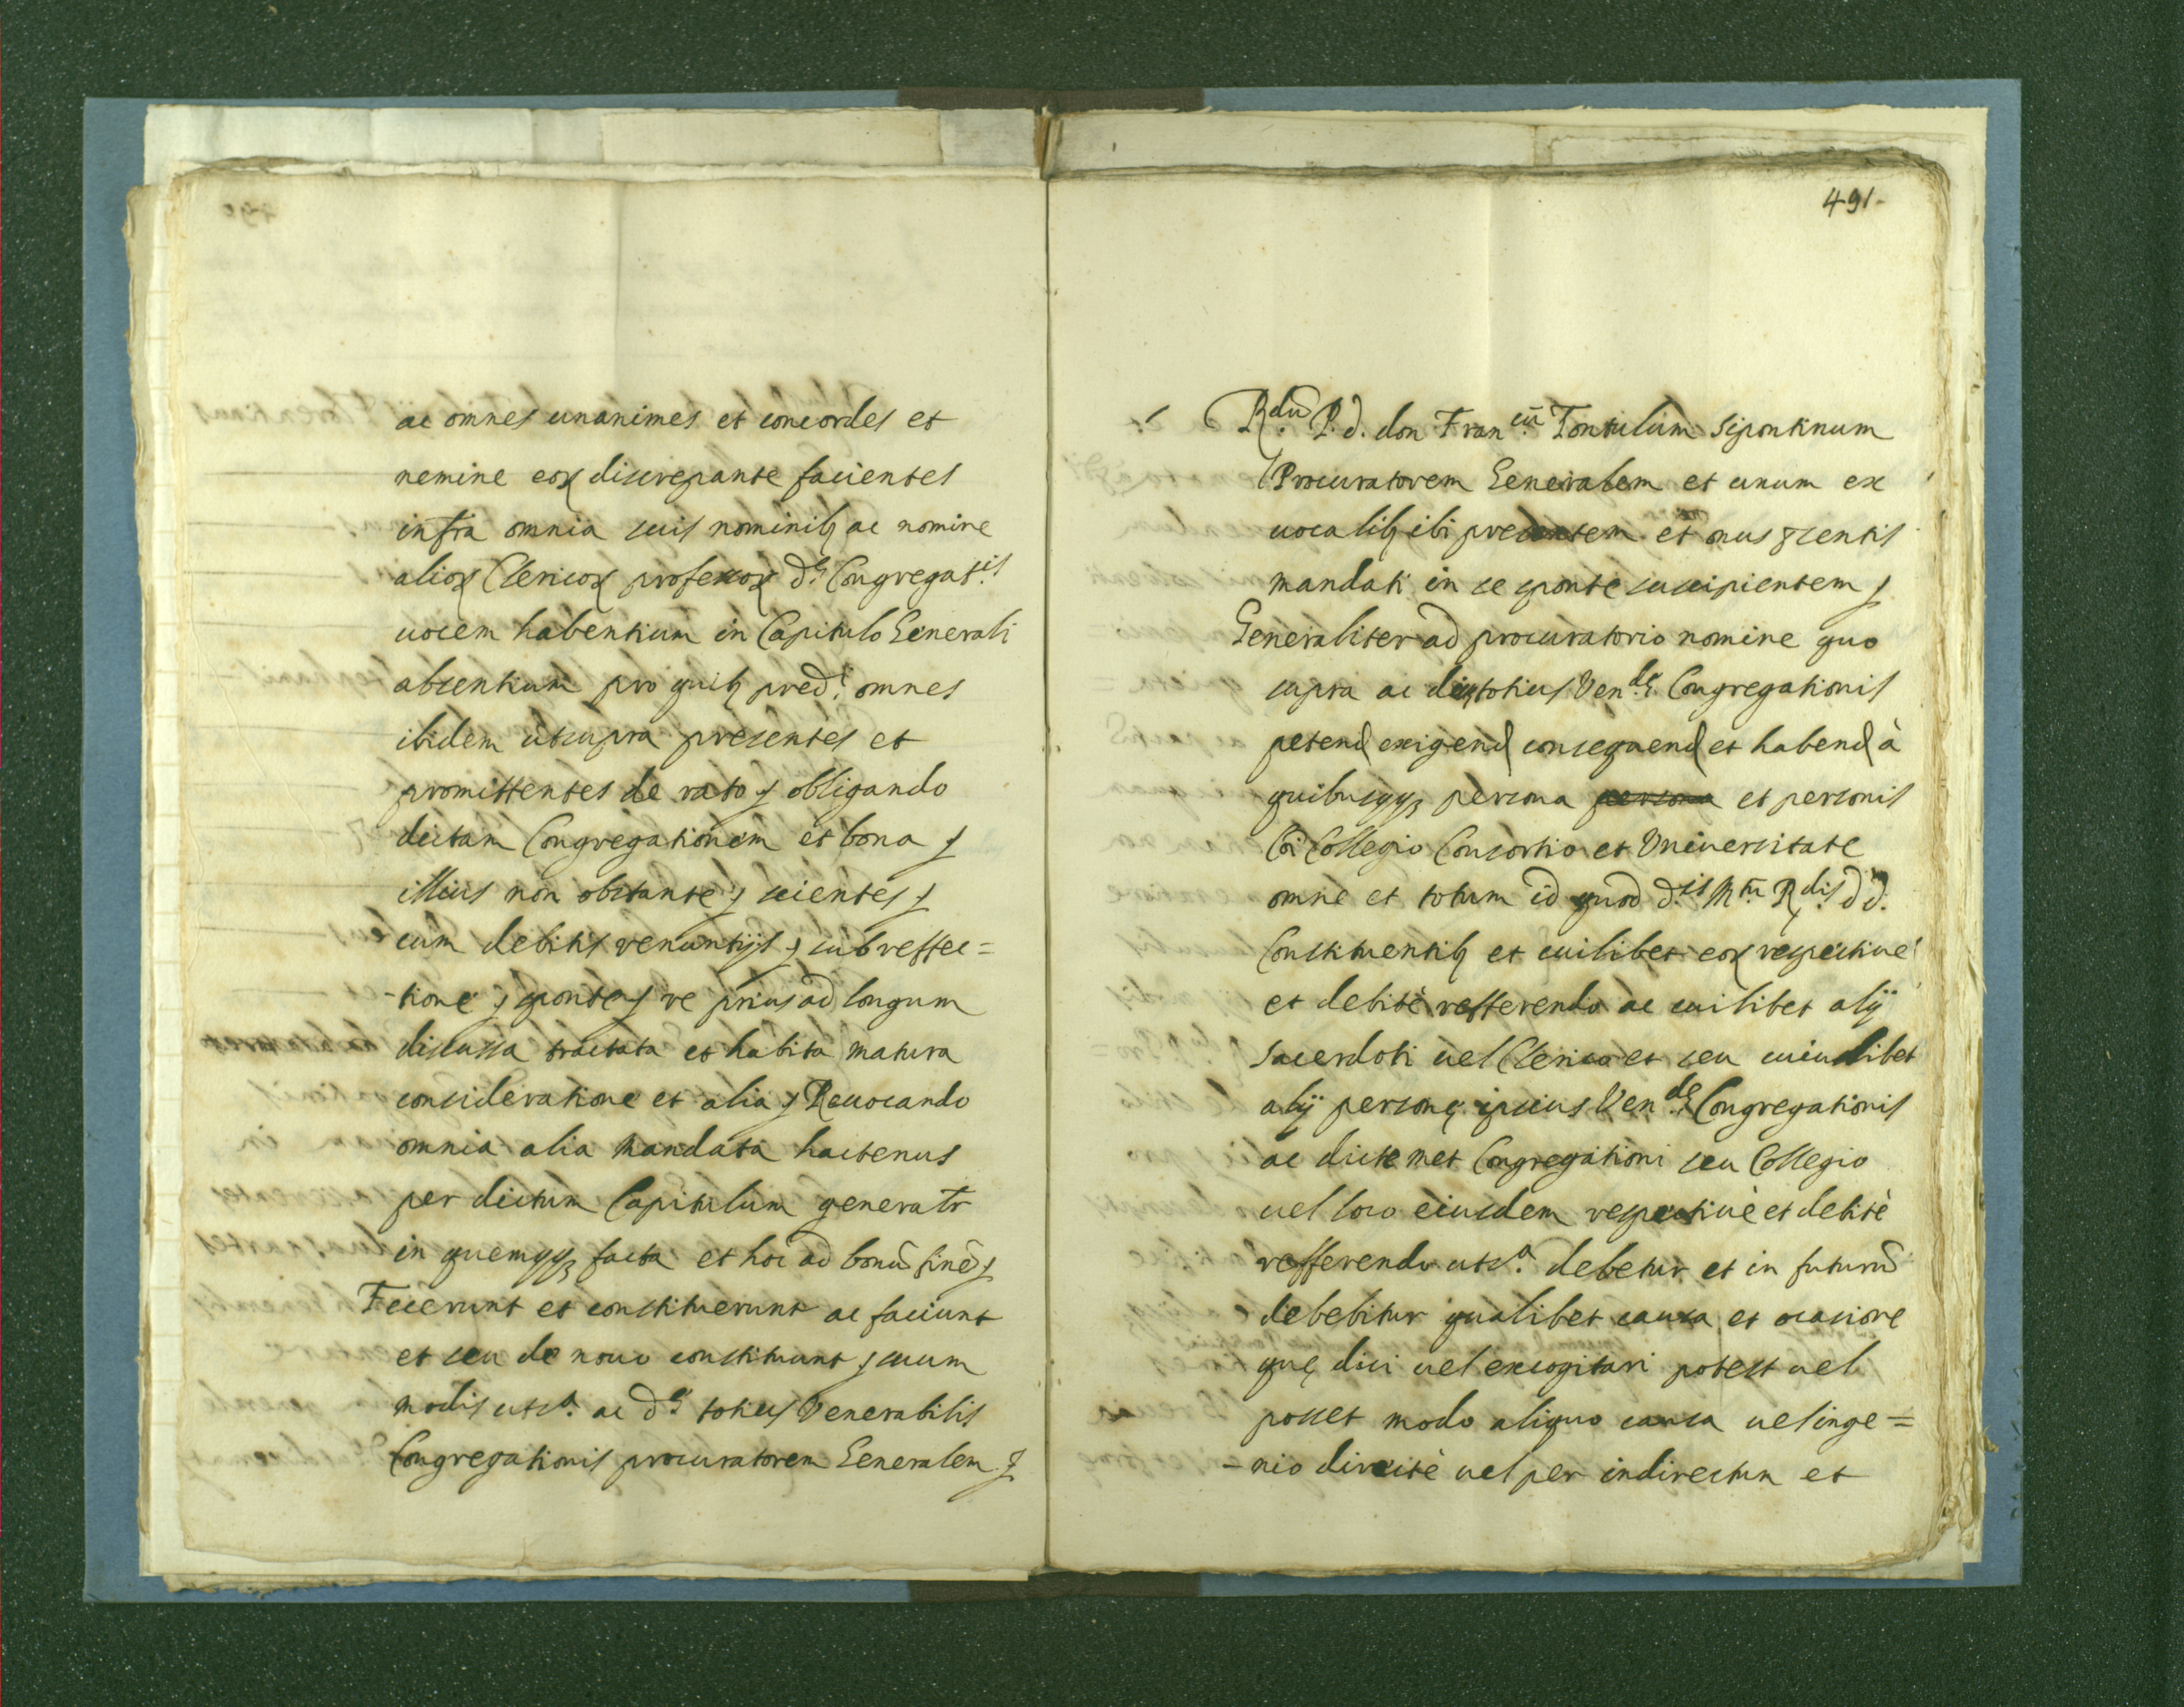 ac omnes unanimes et concordes et
nemine eoꝝ discrepante facientes
infra omnia suis nominibꝫ ac nomine
alioꝝ Clericoꝝ professoꝝ d.ᵉ Congregat.ⁱˢ
uocem habentium in Capitulo Generali
absentium pro quibꝫ pred.ⁱ omnes
ibidem utsupra presentes et
promittentes de rato obligando
dictam Congregationem et bona
illius non obstante scientes
cum debitis renuntijs sub reffec=
-tione sponte re prius ad longum
discussa tractata et habita matura
consideratione et alia Reuocando
omnia alia Mandata hactenus
per dictum Capitulum generalr
in quemqꝫ facta et hoc ad bonū finē
Fecerunt et constituerunt ac faciunt
et seu de nouo constituunt suum
modis uts.ᵃ ac d.ᵉ totius Venerabilis
Congregationis procuratorem Generalem
491-
R.ᵈᵘ P. d. don Fran.ᶜᵘ Tontulum Sipontinum
Procuratorem Generalem et unum ex
uocalibꝫ ibi presentem et onus
mandati in se sponte suscipientem
Generaliter ad procuratorio nomine quo
supra ac totius Ven.ˡᵉ Congregationis
petend exigend consequend et habend à
quibuscqꝫ persona persona et personis
Coi Collegio Consortio et Vniuersitate
omne et totum id quod d.ⁱˢ M.ᵗᵘ R.ᵈⁱˢ d d.
Constituentibꝫ et cuilibet eoꝝ respectiuè
et debitè refferendo ac cuilibet alij
Sacerdoti uel Clerico et seu cuiuslibet
alij personę ipsius Ven.ˡᵉ Congregationis
ac dicte met Congregationi seu Collegio
uel loco eiusdem respectiuè et debitè
refferendo uts.ᵃ debetur et in futurū
debebitur qualibet causa et ocasione
quę dici uel excogitari potest uel
posset modo aliquo causa uel inge=
-nio directè uel per indirectum et